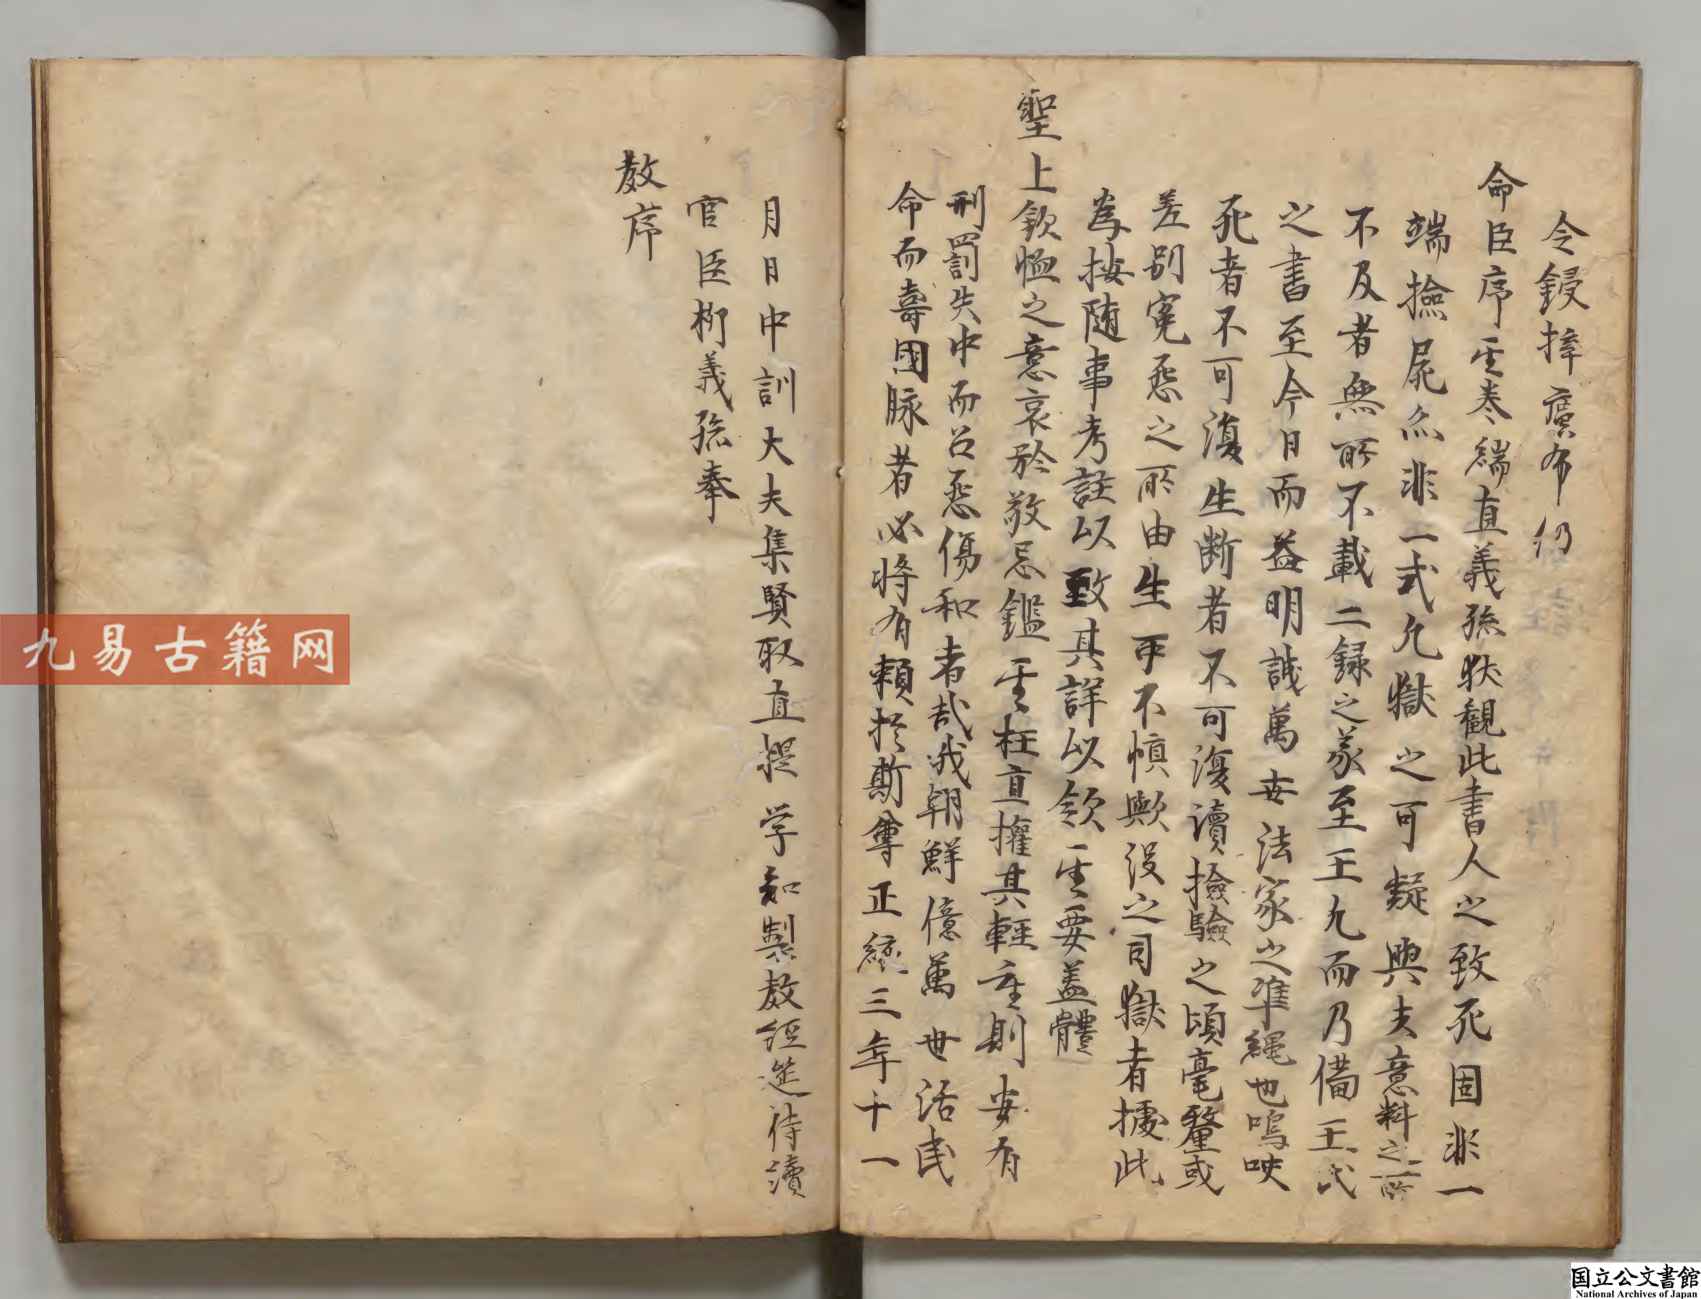 令鋟梓廣布仍
命臣序于卷端直義孫狀觀此書人之致死固非一
端撿屍亦非一式凢獄之可疑與夫意料之所
不及者無所不載二録之家至王九而乃備王氏
之書至今日而益明誠萬世法家之準繩也嗚呼
死者不可復生断者不可復讀撿驗之頃毫釐或
差别寃㤪之所由生可不慎歟後之司獄者據此
為按随事考註以致其詳以領其要盖體
聖上欽恤之意哀矜敬忌鑑其枉直權其輕重則安有
刑罰失中而召㤪傷和者哉我朝鮮億萬世活民
命而壽國脉者必將有頼扵斯尊正統三年十一
月日中訓大夫集賢殿直提学知製教經筵侍讀
官臣柳義孫奉
教序
九易古籍网
国立公文書館
National Archives of Japan